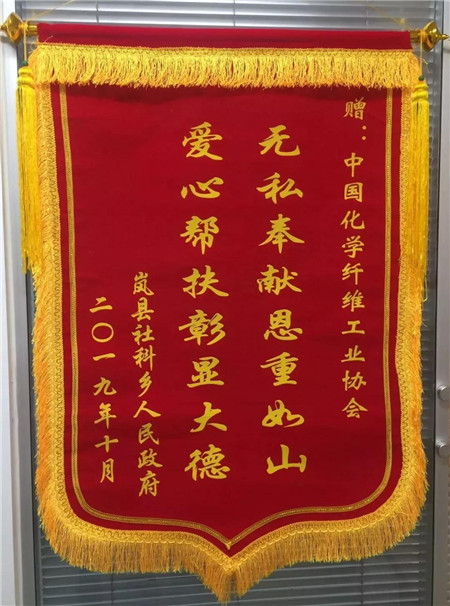 赠：中国化学纤维工业协会
无私奉献恩重如山
爱心帮扶彰显大德
岚县社科乡人民政府
二〇一九年十月